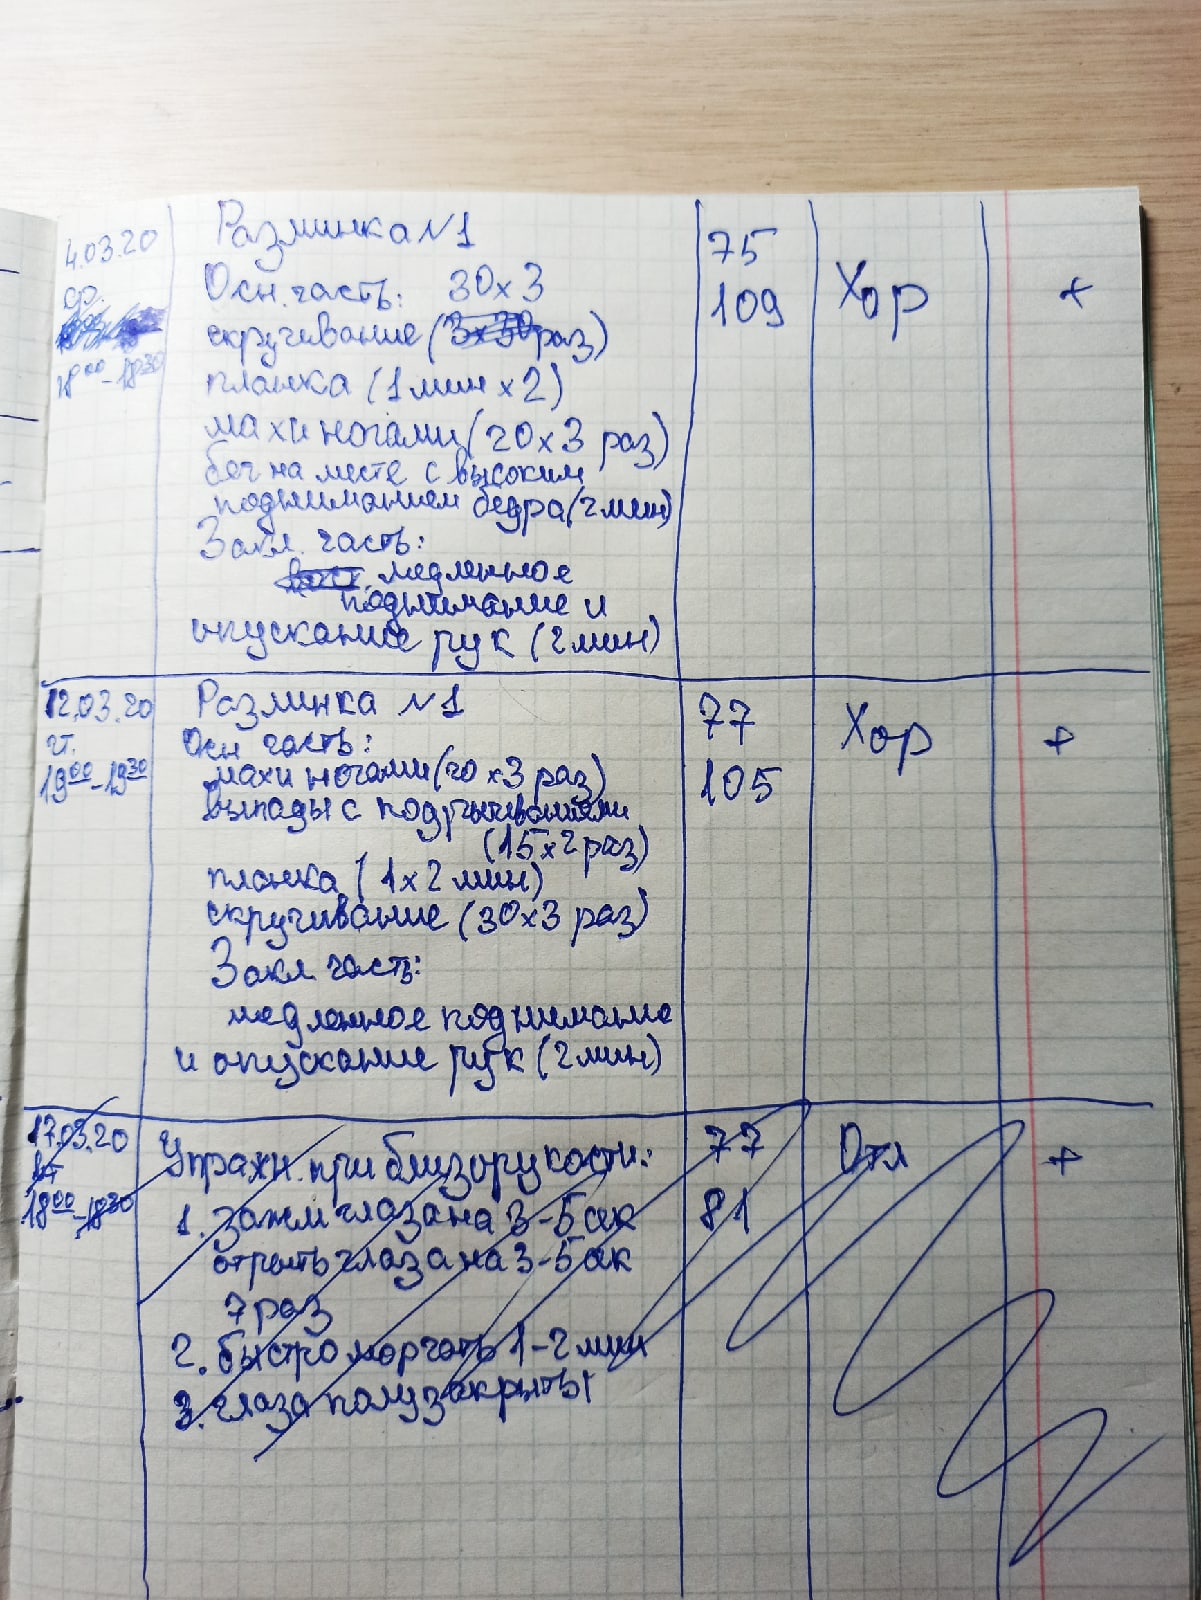 4.03.20
ср.
18⁰⁰-18³⁰
Разминка №1
Осн. часть: 30х3
скручивание (3х30 раз)
планка (1 мин х 2)
махи ногами (20х3 раз)
бег на месте с высоким
подниманием бедра (2 мин)
Закл. часть:
медленное
поднимание и
опускание рук (2 мин)
75
109
Хор
+
12.03.20
чт.
19⁰⁰-19³⁰
Разминка №1
Осн часть:
махи ногами (20 х 3 раз)
выпады с подпрыгиваниями
(15х2 раз)
планка (1х2 мин)
скручивание (30х3 раз)
Закл часть:
медленное поднимание
и опускание рук (2 мин)
77
105
Хор
+
17.03.20
вт
18⁰⁰-18³⁰
Упражн. при близорукости:
1. зажм глаза на 3-5 сек
отрыть глаза на 3-5 сек
7 раз
2. быстро моргать 1-2 мин
3. глаза полузакрыты
77
81
Отл
+